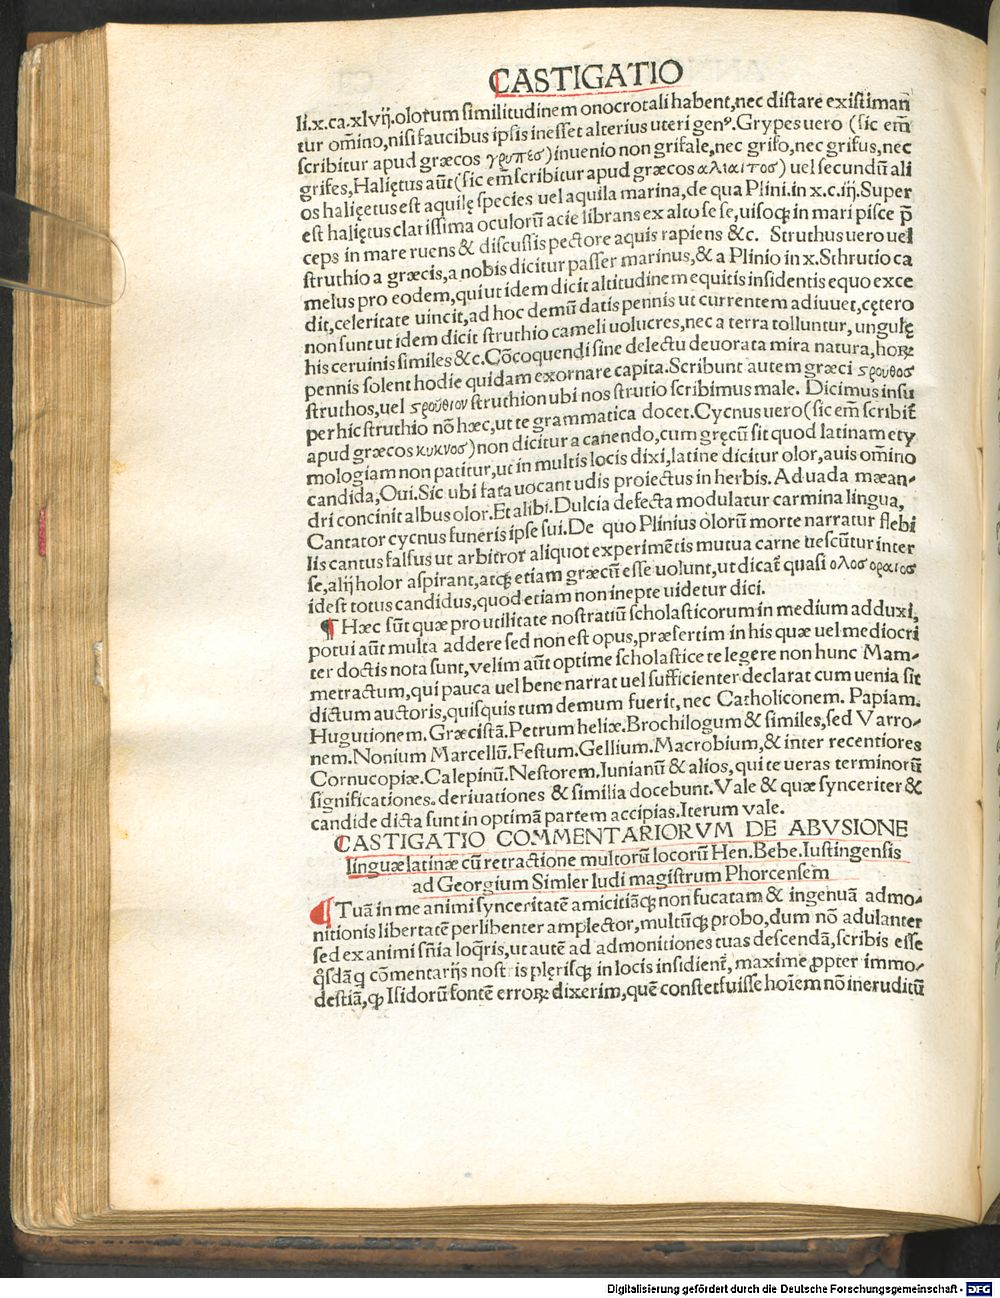 CASTIGATIO
li.x.ca.xlvij.olorum similitudinem onocrotali habent,nec distare existiman̄
tur om̄ino,nisi faucibus ipsis inesset alterius uteri genꝰ.Grypes uero (sic em̄
scribitur apud græcos γρυπεσ)inuenio non grifale,nec grifo,nec grifus,nec
grifes,Haliętus aūt(sic em̄ scribitur apud græcos αλιαιτοσ) uel secundū ali
os halięetus est aquilę species uel aquila marina,de qua Plini.in x.c.iij.Super
est halięetus clarissima oculorū acie librans ex alto se se,uisoq̃ in mari pisce p̄
ceps in mare ruens & discussis pectore aquis rapiens &c. Struthus uero uel
struthio a græcis,a nobis dicitur passer marinus,& a Plinio in x.Sthrutio ca
melus pro eodem,qui ut idem dicit altitudinem equitis insidentis equo exce
dit,celeritate uincit,ad hoc demū datis pennis ut currentem adiuuet,cętero
non sunt ut idem dicit struthio cameli uolucres,nec a terra tolluntur, ungulę
his ceruinis similes &c.Cōcoquendi sine delectu deuorata mira natura,hoꝝ
pennis solent hodie quidam exornare capita.Scribunt autem græci ϛρουθοσ
struthos,uel ϛρούθιον struthion ubi nos strutio scribimus male. Dicimus insu
per hic struthio nō hæc,ut te grammatica docet.Cycnus uero(sic em̄ scribit̄
apud græcos κυκνοσ)non dicitur a canendo,cum gręcū sit quod latinam ety
mologiam non patitur,ut in multis locis dixi,latine dicitur olor,auis om̄ino
candida,Oui.Sic ubi fata uocant udis proiectus in herbis. Ad uada mæan-
dri concinit albus olor.Et alibi.Dulcia defecta modulatur carmina lingua,
Cantator cycnus funeris ipse sui.De quo Plinius olorū morte narratur flebi
lis cantus falsus ut arbitror aliquot experimētis mutua carne uescūtur inter
se,alij holor aspirant,atq̃ etiam græcū esse uolunt,ut dicat̄ quasi ολοσ οραιοσ
idest totus candidus,quod etiam non inepte uidetur dici.
¶ Hæc sūt quæ pro utilitate nostratiū scholasticorum in medium adduxi,
potui aūt multa addere sed non est opus,præsertim in his quæ uel mediocri
ter doctis nota sunt,velim aūt optime scholastice te legere non hunc Mam-
metractum,qui pauca uel bene narrat uel sufficienter declarat cum uenia sit
dictum auctoris,quisquis tum demum fuerit,nec Catholiconem. Papiam.
Hugutionem.Græcistā.Petrum heliæ.Brochilogum & similes,sed Varro-
nem.Nonium Marcellū.Festum.Gellium.Macrobium,& inter recentiores
Cornucopiæ.Calepinū.Nestorem.Iunianū & alios,qui te ueras terminorū
significationes.deriuationes & similia docebunt.Vale & quæ synceriter &
candide dicta sunt in optimā partem accipias.Iterum vale.
CASTIGATIO COMMENTARIORVM DE ABVSIONE
linguæ latinæ cū retractione multorū locorū Hen.Bebe.Iustingensis
ad Georgium Simler ludi magistrum Phorcensem
¶ Tuā in me animi synceritatē amicitiāq̃ non fucatam & ingenuā admo-
nitionis libertatē perlibenter amplector,multūq̃ probo,dum nō adulanter
sed ex animi sn̄ia loq̄ris,ut autē ad admonitiones tuas descendā,scribis esse
q̊sdā q̱ cōmentarijs nostris plęrisq̃ in locis insidient̄, maxime ꝓpter immo-
destiā,ꝙ Isidorū fontē erroꝝ dixerim,quē constet fuisse hoīem nō ineruditū
Digitalisierung gefördert durch die Deutsche Forschungsgemeinschaft - DFG